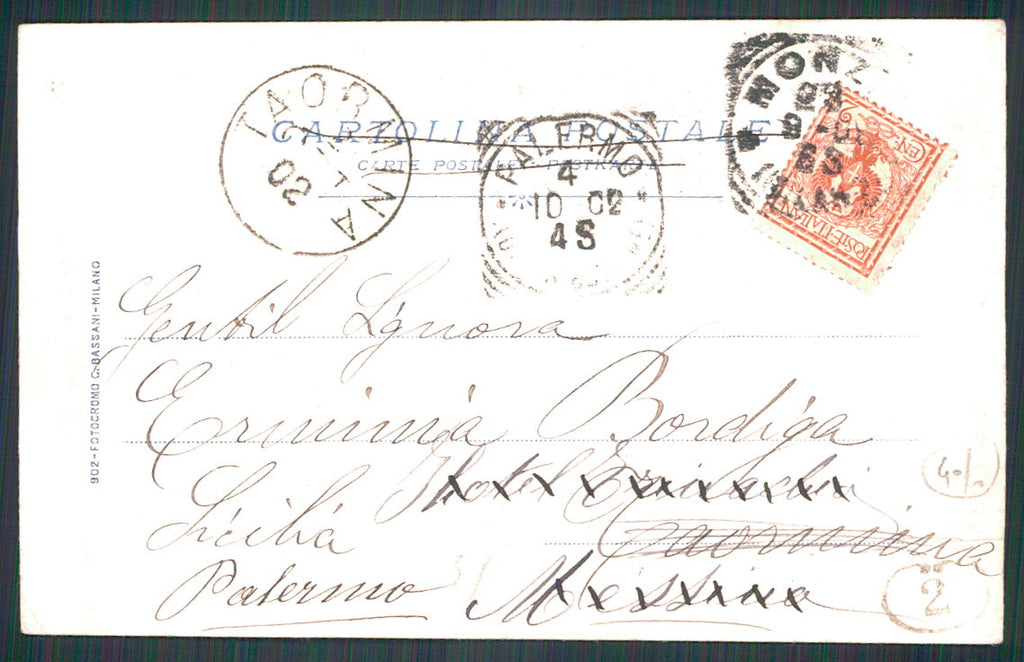 TAORMINA
02
CARTOLINA POSTALE
CARTE POSTALE - POSTKARTE
PALERMO
4
10 02
4S
MONZ
EN
POSTE·ITALIANE
902-FOTOCROMO C. BASSANI-MILANO
Gentil Signora
Erminia Bordiga
Hotel
Sicilia
Taormina
Palermo Messina
40/.
2